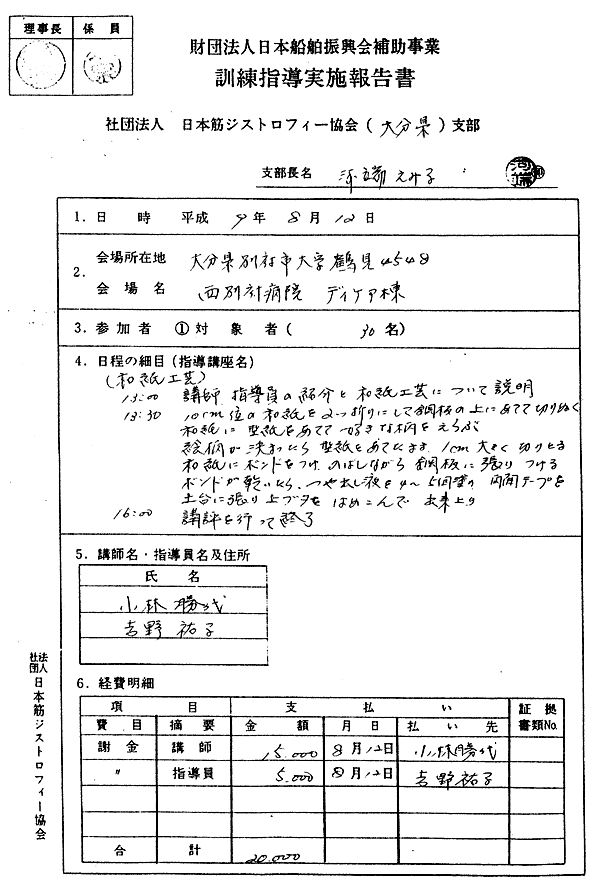 理事長 係員
財団法人日本船舶振興会補助事業
訓練指導実施報告書
社団法人 日本筋ジストロフィー協会(大分県)支部
支部長名 河端えみ子
河端
1.日 時 平成 9年 8月 12日
2.会場所在地 大分県別府市大字鶴見4548
会場名 西別府病院 デイケア棟
3.参加者 ①対象者( 30名)
4.日程の細目(指導講座名)
(和紙工芸)
13:00 講師、指導員の紹介と和紙工芸について説明
13:30 10cm位の和紙を2つ折りにして銅板の上にあてて切りぬく
和紙に型紙をあてて好きな柄をえらぶ
絵柄が決まったら型紙とあてはます。1cm大きく切りとる
和紙にボンドをつけ、のばしながら銅板に張りつける
ボンドが乾いたら、つや出し液を4〜5回塗り 両面テープを
土台に張り上ブタをはめこんで出来上り
16:00 講評を行って終了
5.講師名・指導員名及住所
氏 名
小林勝代
吉野祐子
6.経費明細
項 目 支 払 い 証拠書類No.
費目 摘要 金額 月日 払い先
謝金 講師 15.000 8月12日 小林勝代
〃 指導員 5.000 8月12日 吉野祐子
合 計 20.000
社団法人 日本筋ジストロフィー協会